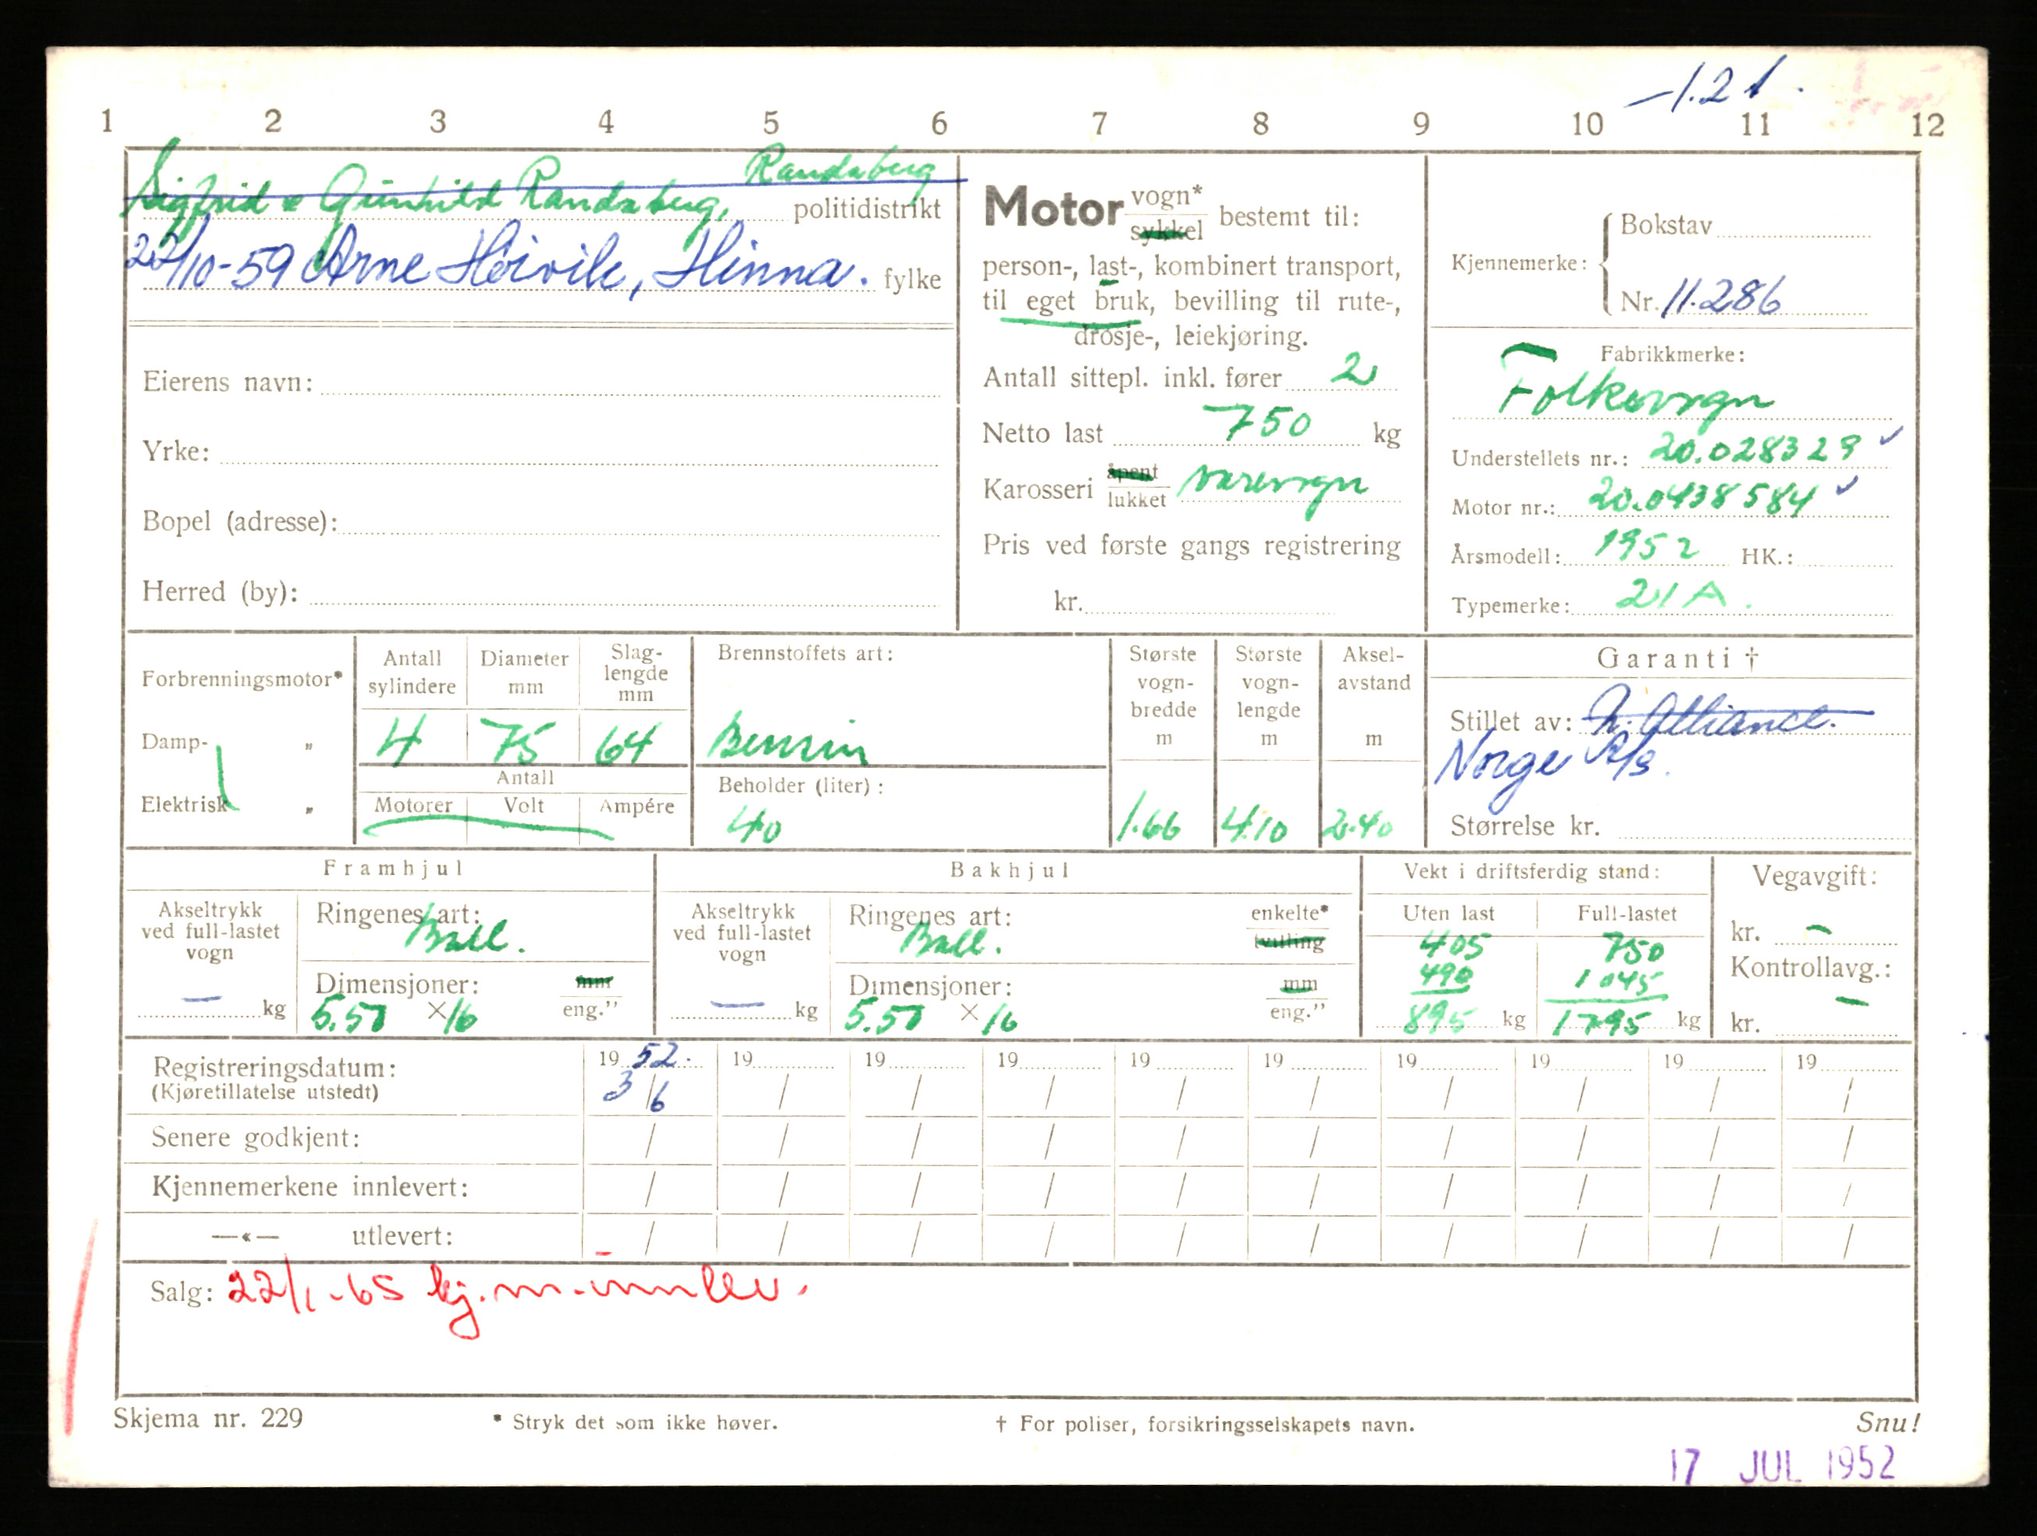 -1.21.
1 2 3 4 5 6 7 8 9 10 11 12
Randaberg
Sigfrid & Gunhild Randaberg, politidistrikt
22/10-59 Arne Høivik, Hinna. fylke
Eierens navn:
Yrke:
Bopel (adresse):
Herred (by):
Motor vogn* sykkel bestemt til:
person-, last-, kombinert transport,
til eget bruk, bevilling til rute-,
drosje-, leiekjøring.
Antall sittepl. inkl. fører 2
Netto last 750 kg
Karosseri åpent lukket varevogn
Pris ved første gangs registrering
kr.
Kjennemerke:
Bokstav
Nr. 11.286
Fabrikkmerke:
Folkevogn
Understellets nr.: 20.028329
Motor nr.: 20.0438584
Årsmodell: 1952 HK.:
Typemerke: 21A.
Forbrenningsmotor*
Damp- "
Elektrisk "
Antall sylindere
Diameter mm
Slag-lengde mm
4 75 64
Antall
Motorer Volt Ampére
Brennstoffets art:
Bensin
Beholder (liter):
40
Største vogn-bredde m
1.66
Største vogn-lengde m
4.10
Aksel-avstand m
2.40
Garanti †
Stillet av: N. Alliance.
Norge A/S.
Størrelse kr.
Framhjul
Akseltrykk ved full-lastet vogn
— kg
Ringenes art:
Ball.
Dimensjoner: mm
5.50 × 16 eng."
Bakhjul
Akseltrykk ved full-lastet vogn
— kg
Ringenes art: enkelte*
Ball. tvilling
Dimensjoner: mm
5.50 × 16 eng."
Vekt i driftsferdig stand:
Uten last Full-lastet
405 750
490 1045
895 kg 1795 kg
Vegavgift:
kr. —
Kontrollavg.:
kr. —
Registreringsdatum: 19 52. 19 19 19 19 19 19 19 19 19
(Kjøretillatelse utstedt) 3/6 / / / / / / / / /
Senere godkjent: / / / / / / / / / /
Kjennemerkene innlevert: / / / / / / / / / /
—«— utlevert: / / / / / / / / / /
Salg: 22/1-65 kj.m. innlev.
Skjema nr. 229 * Stryk det som ikke høver. † For poliser, forsikringsselskapets navn. Snu!
17 JUL 1952